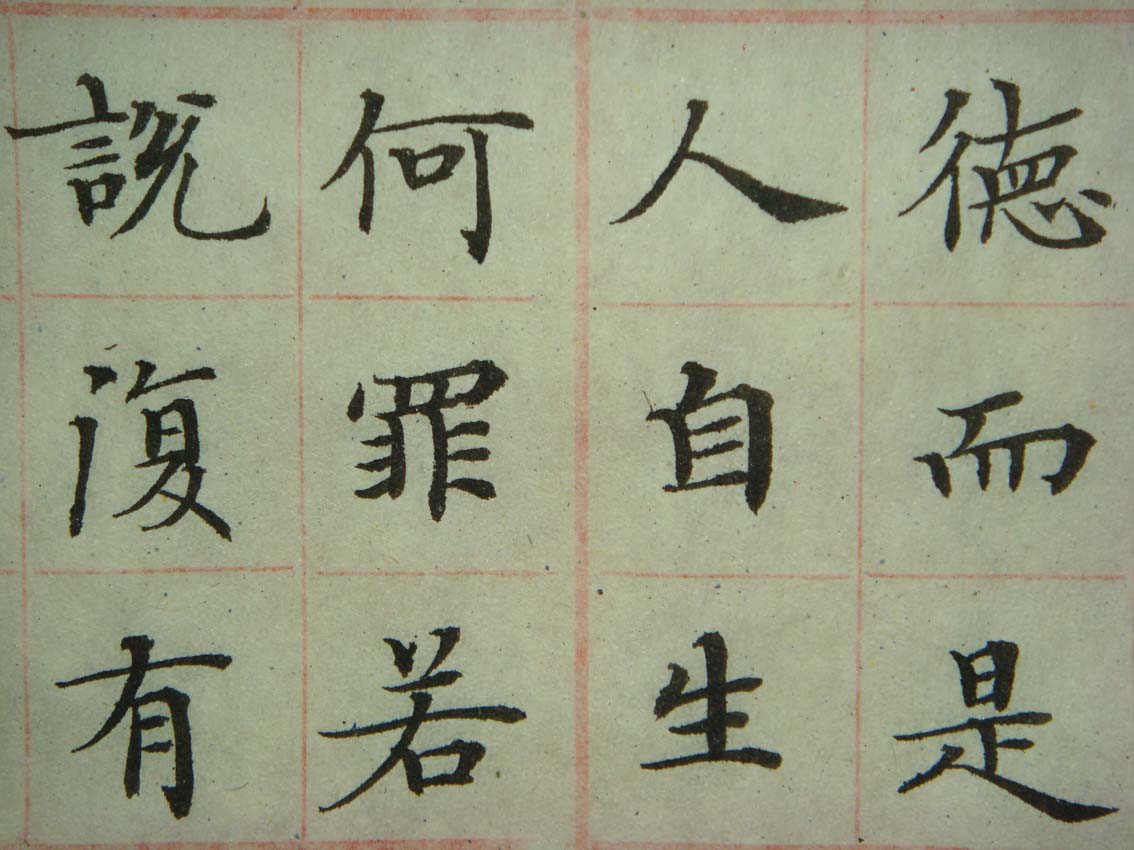 徳而是
人自生
何罪若
說復有